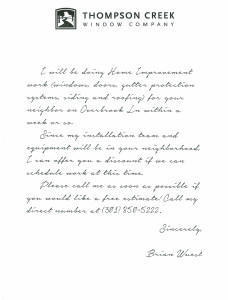 THOMPSON CREEK
WINDOW COMPANY
I will be doing Home Improvement
work (windows, doors, gutter protection
systems, siding and roofing) for your
neighbor on Overbrook Ln within a
week or so.
Since my installation team and
equipment will be in your neighborhood,
I can offer you a discount if we can
schedule work at this time.
Please call me as soon as possible if
you would like a free estimate! Call my
direct number at (301) 850-5222.
Sincerely,
Brian Wuest